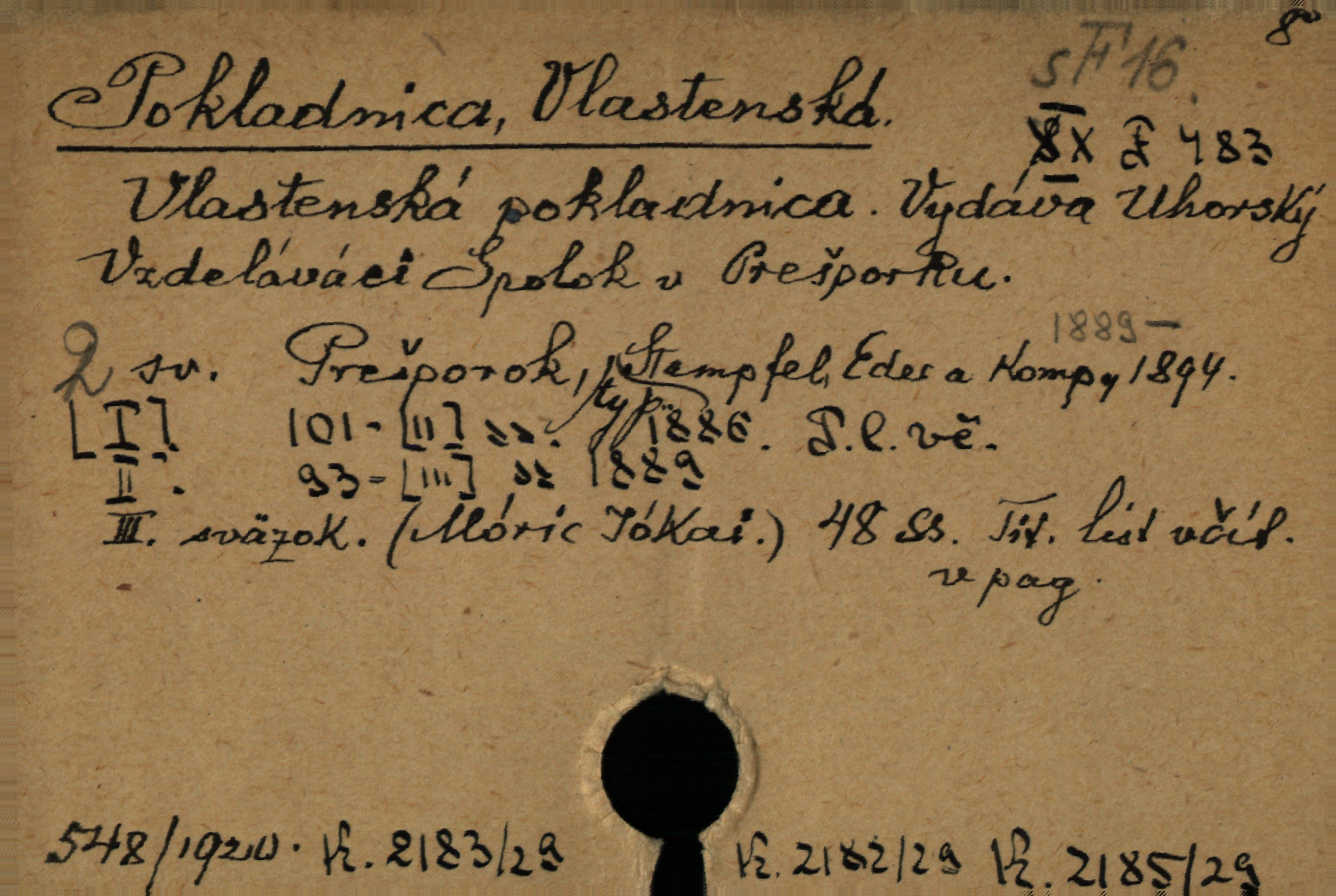 8°
sF 16.
Pokladnica, Vlastenská.
X F 483
Vlastenská pokladnica. Vydáva Uhorský
Vzdelávácí Spolok v Prešporku.
1889-
2 sv. Prešporok, typ. Stampfel, Eder a Komp, 1894.
[I]. 101-[II] ss. 1886. T.l.vč.
II. 93-[III] ss 1889
III. sväzok. (Móric Jókai.) 48 ss. Tit. list včít.
v pag.
548/1920. K. 2183/29 K. 2182/29 K. 2185/29